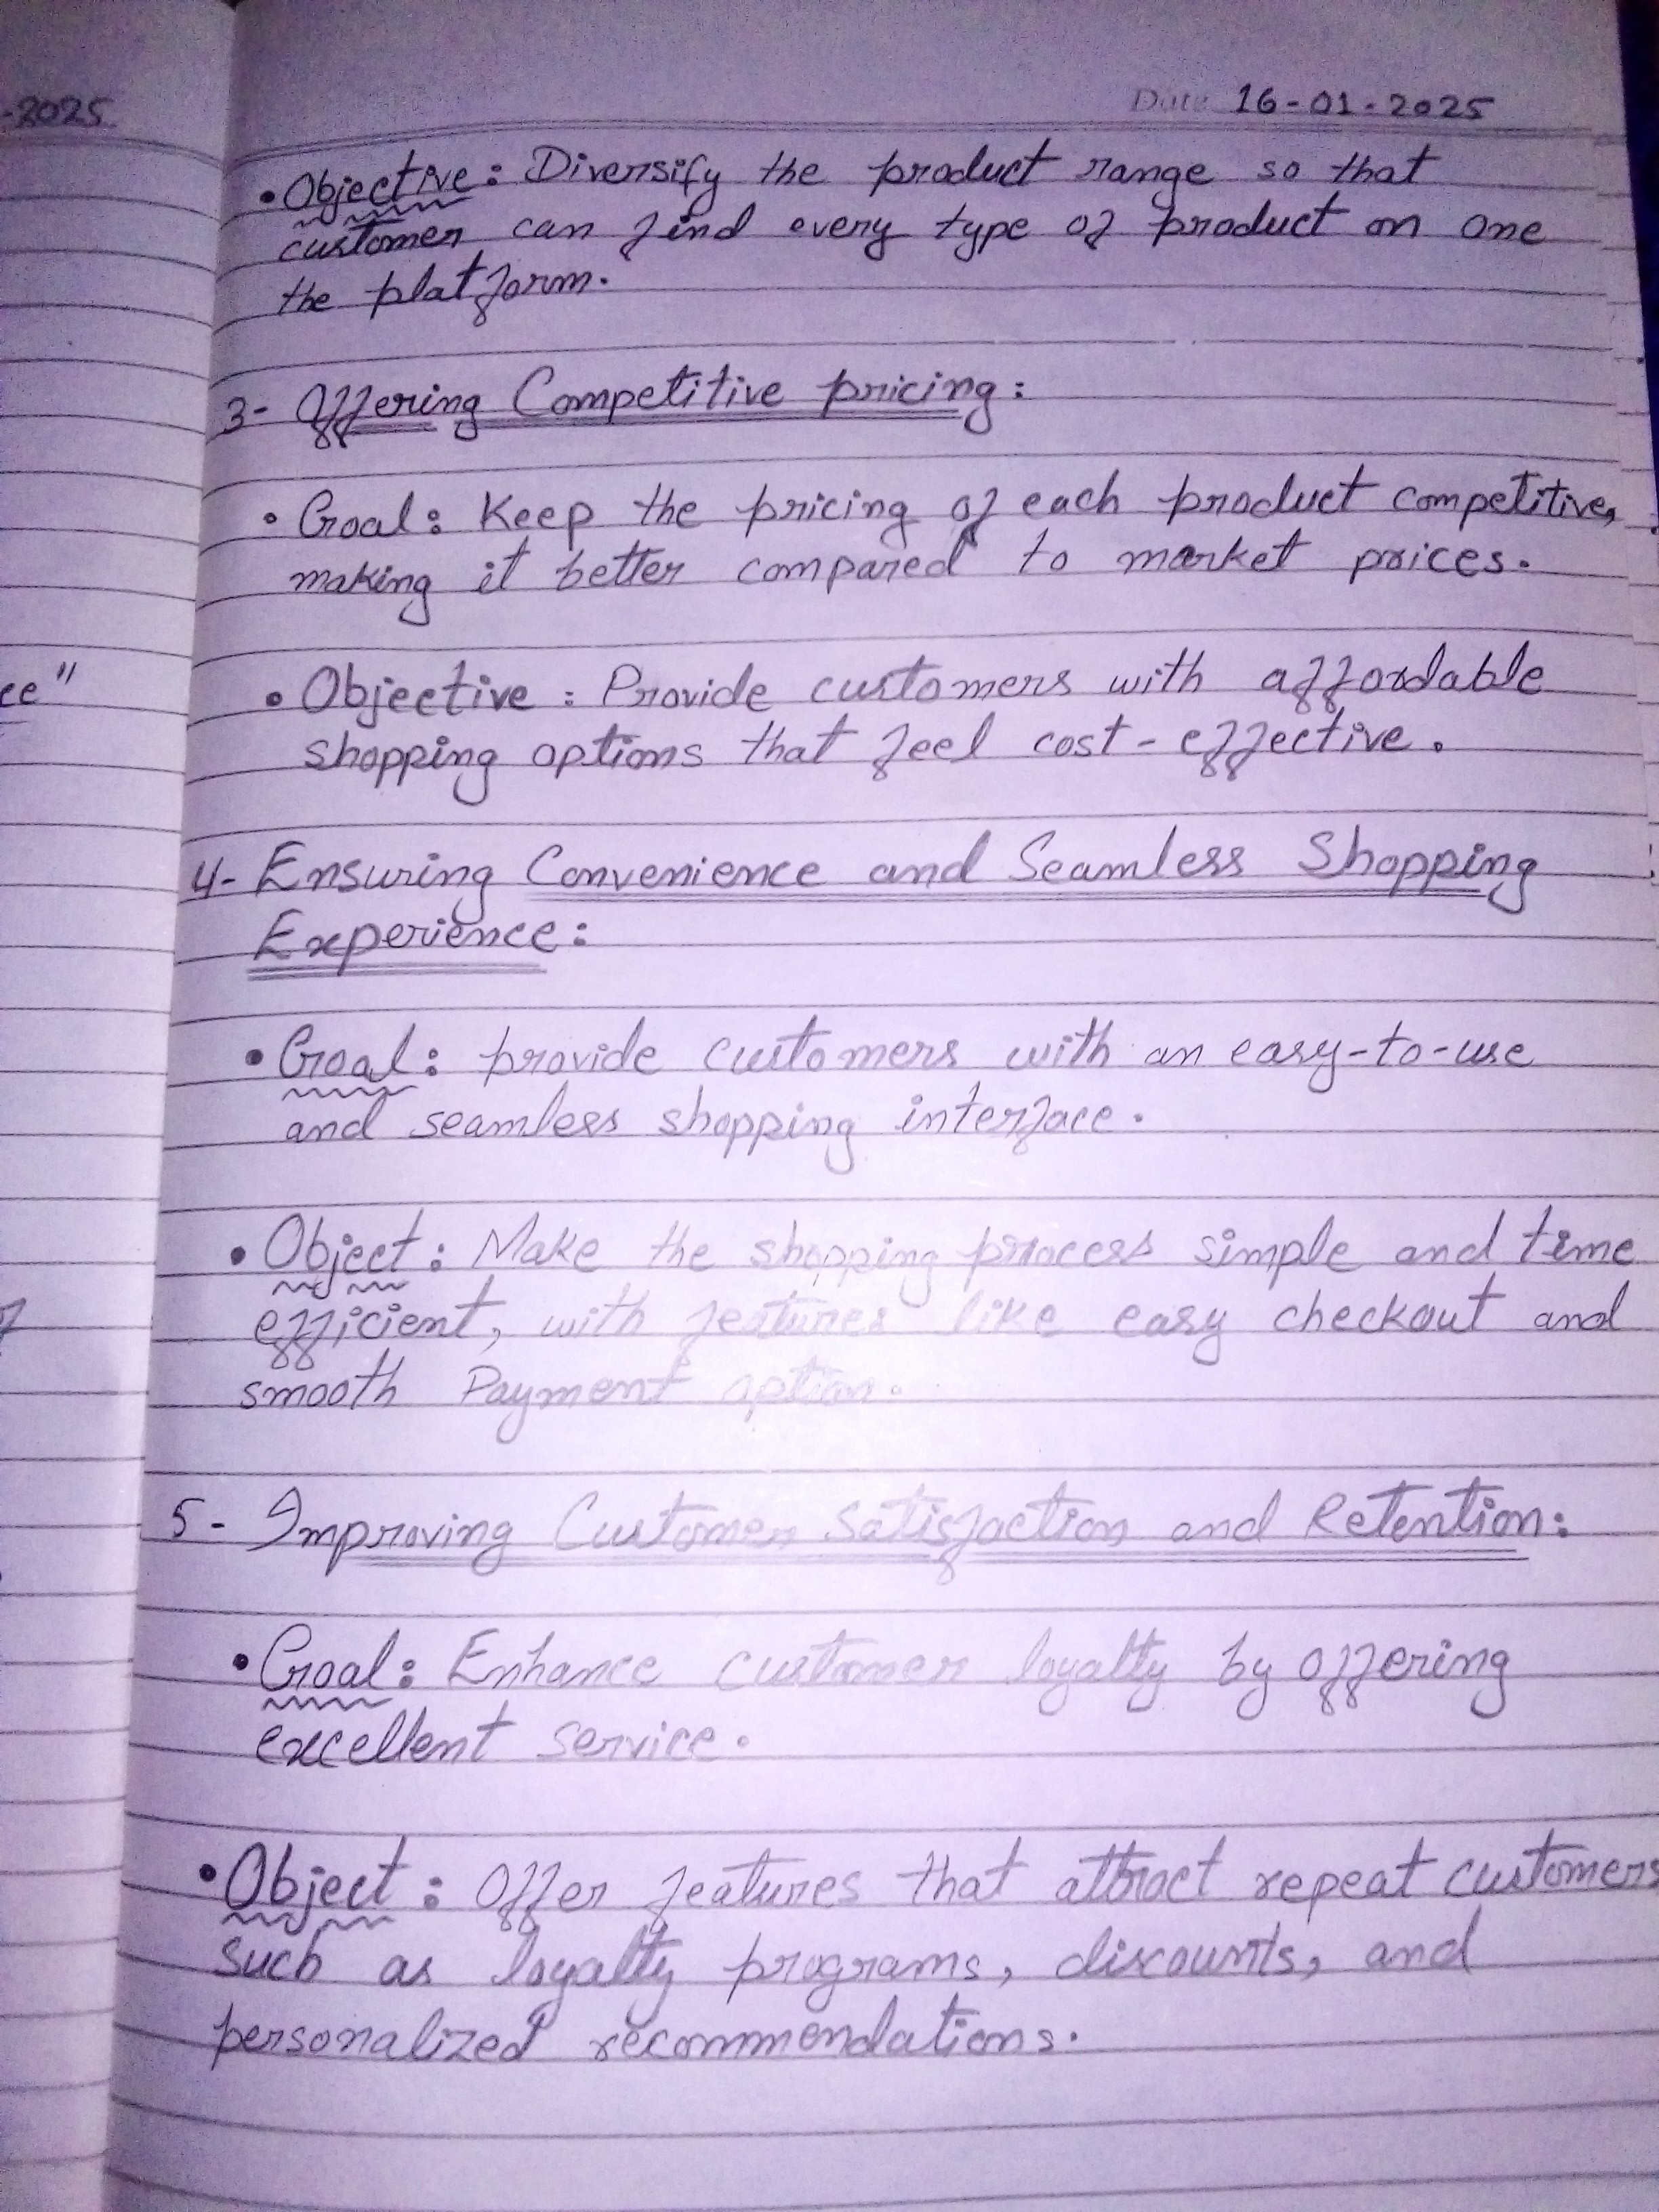 -2025
Date 16-01-2025
• Objective: Diversify the product range so that
customer can find every type of product on one
the platform.
3- Offering Competitive pricing:
• Goal: Keep the pricing of each product competitive,
making it better compared to market prices.
ce"
• Objective: Provide customers with affordable
shopping options that feel cost-effective.
4- Ensuring Convenience and Seamless Shopping
Experience:
• Goal: provide customers with an easy-to-use
and seamless shopping interface.
• Object: Make the shopping process simple and time
efficient, with features like easy checkout and
smooth Payment option.
5- Improving Customer Satisfaction and Retention:
• Goal: Enhance customer loyalty by offering
excellent service.
• Object: Offer features that attract repeat customers
such as loyalty programs, discounts, and
personalized recommendations.